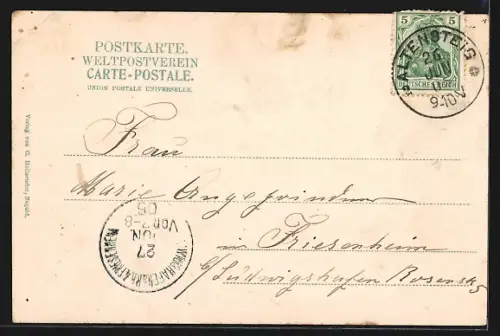 POSTKARTE.
WELTPOSTVEREIN
CARTE-POSTALE.
UNION POSTALE UNIVERSELLE.
5 5
DEUTSCHES REICH
ALTENSTEIG
26
JUN
9-10V
Frau
Marie Angefrinduer
in Friesenheim
b/Ludwigshafen Rosenstr 5
27
JUN
05
Vor. 7-8
Verlag von G.